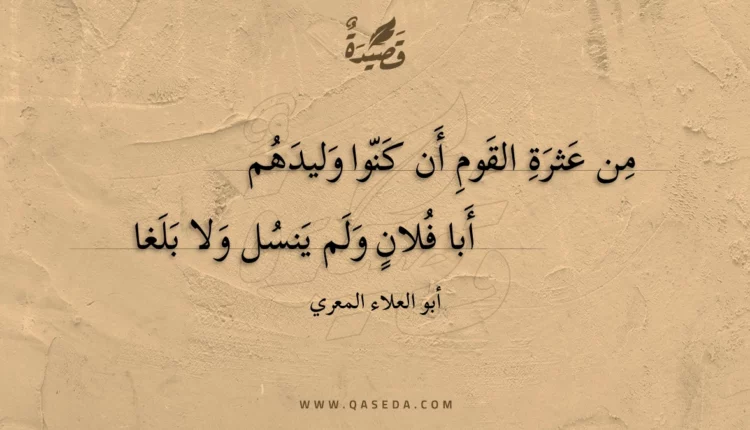 قَصِيْدَةٌ
مِن عَثرَةِ القَومِ أَن كَنّوا وَليدَهُم
أَبا فُلانٍ وَلَم يَنسُل وَلا بَلَغا
أبو العلاء المعري
WWW.QASEDA.COM